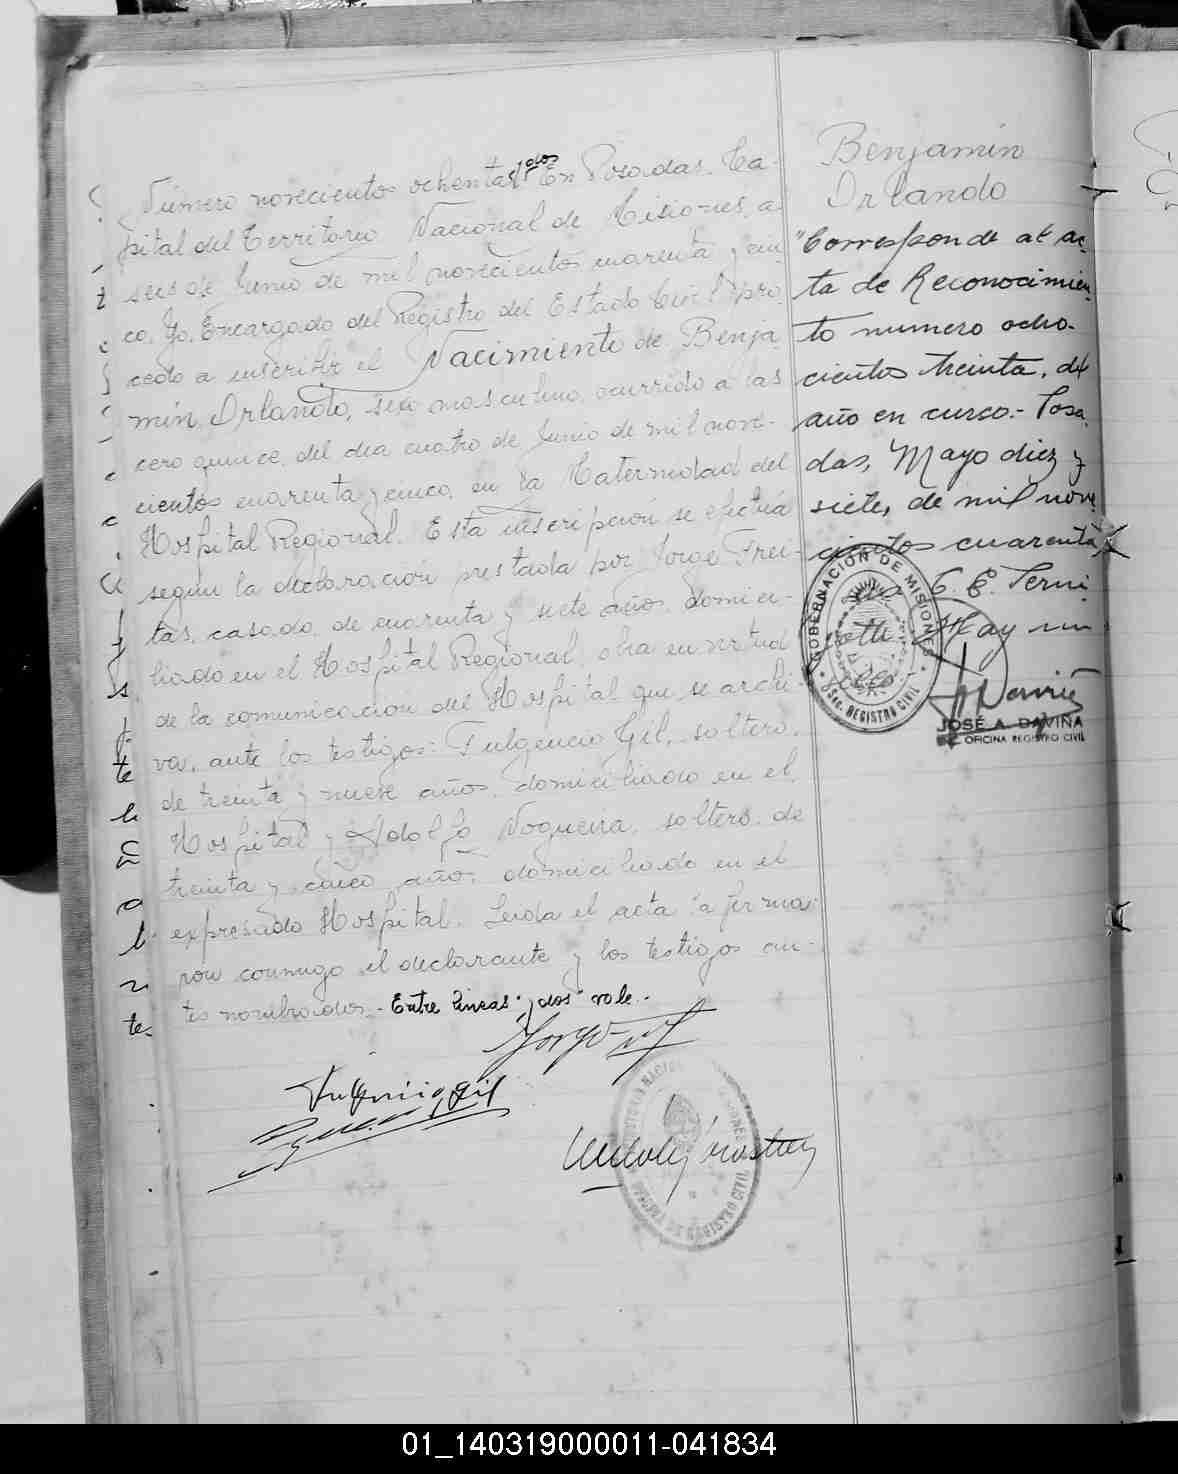 Número novecientos ochenta y dos En Posadas. Ca-
pital del Territorio Nacional de Misiones, a
seis de Junio de mil novecientos cuarenta y cin
co. Yo. Encargado del Registro del Estado Civil, pro
cedo a inscribir el Nacimiento de Benja
mín, Orlando, sexo masculino, ocurrido a las
cero quince, del día cuatro de Junio de mil nove-
cientos cuarenta y cinco, en la Maternidad del
Hospital Regional. Esta inscripción se efectúa
según la declaración prestada por Jorge Frei-
tas, casado, de cuarenta y siete años, domici-
liado en el Hospital Regional, obra en virtud
de la comunicación del Hospital que se archi
va, ante los testigos: Fulgencio Gil, soltero,
de treinta y nueve años, domiciliado en el
Hospital y Adolfo Nogueira, soltero, de
treinta y cinco años, domiciliado en el
expresado Hospital. Leida el acta la firma
ron conmigo el declarante y los testigos an-
tes nombrados.- Entre lineas "y dos" vale.-
Fulgencio Gil
Benjamín
Orlando
"Corresponde al ac
ta de Reconocimien
to numero ocho-
cientos treinta, del
año en curso.- Posa
das, Mayo diez y
siete, de mil nove
cientos cuarenta
Hay un
sello
GOBERNACIÓN DE MISIONES
OSIC. REGISTRO CIVIL
JOSÉ A. DAVIÑA
OFICINA REGISTRO CIVIL
REGISTRO CIVIL
01_140319000011-041834